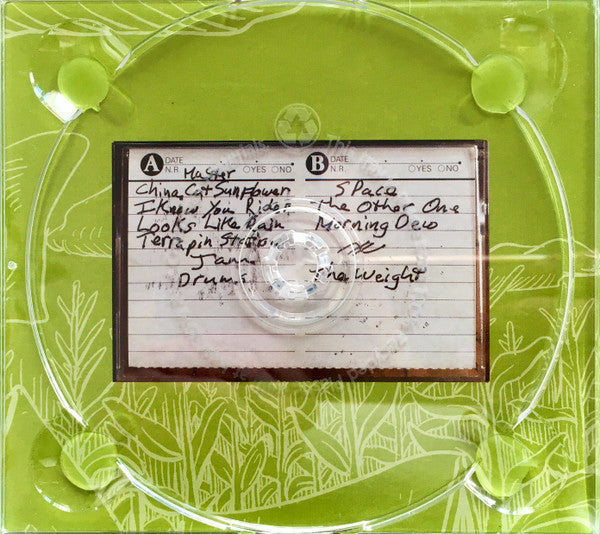 A DATE
N.R. YES NO
Master
China Cat Sunflower
I Know You Rider
Looks Like Rain
Terrapin Station
Jam
Drums
B DATE
N.R. YES NO
SPace
The Other One
Morning Dew
The Weight